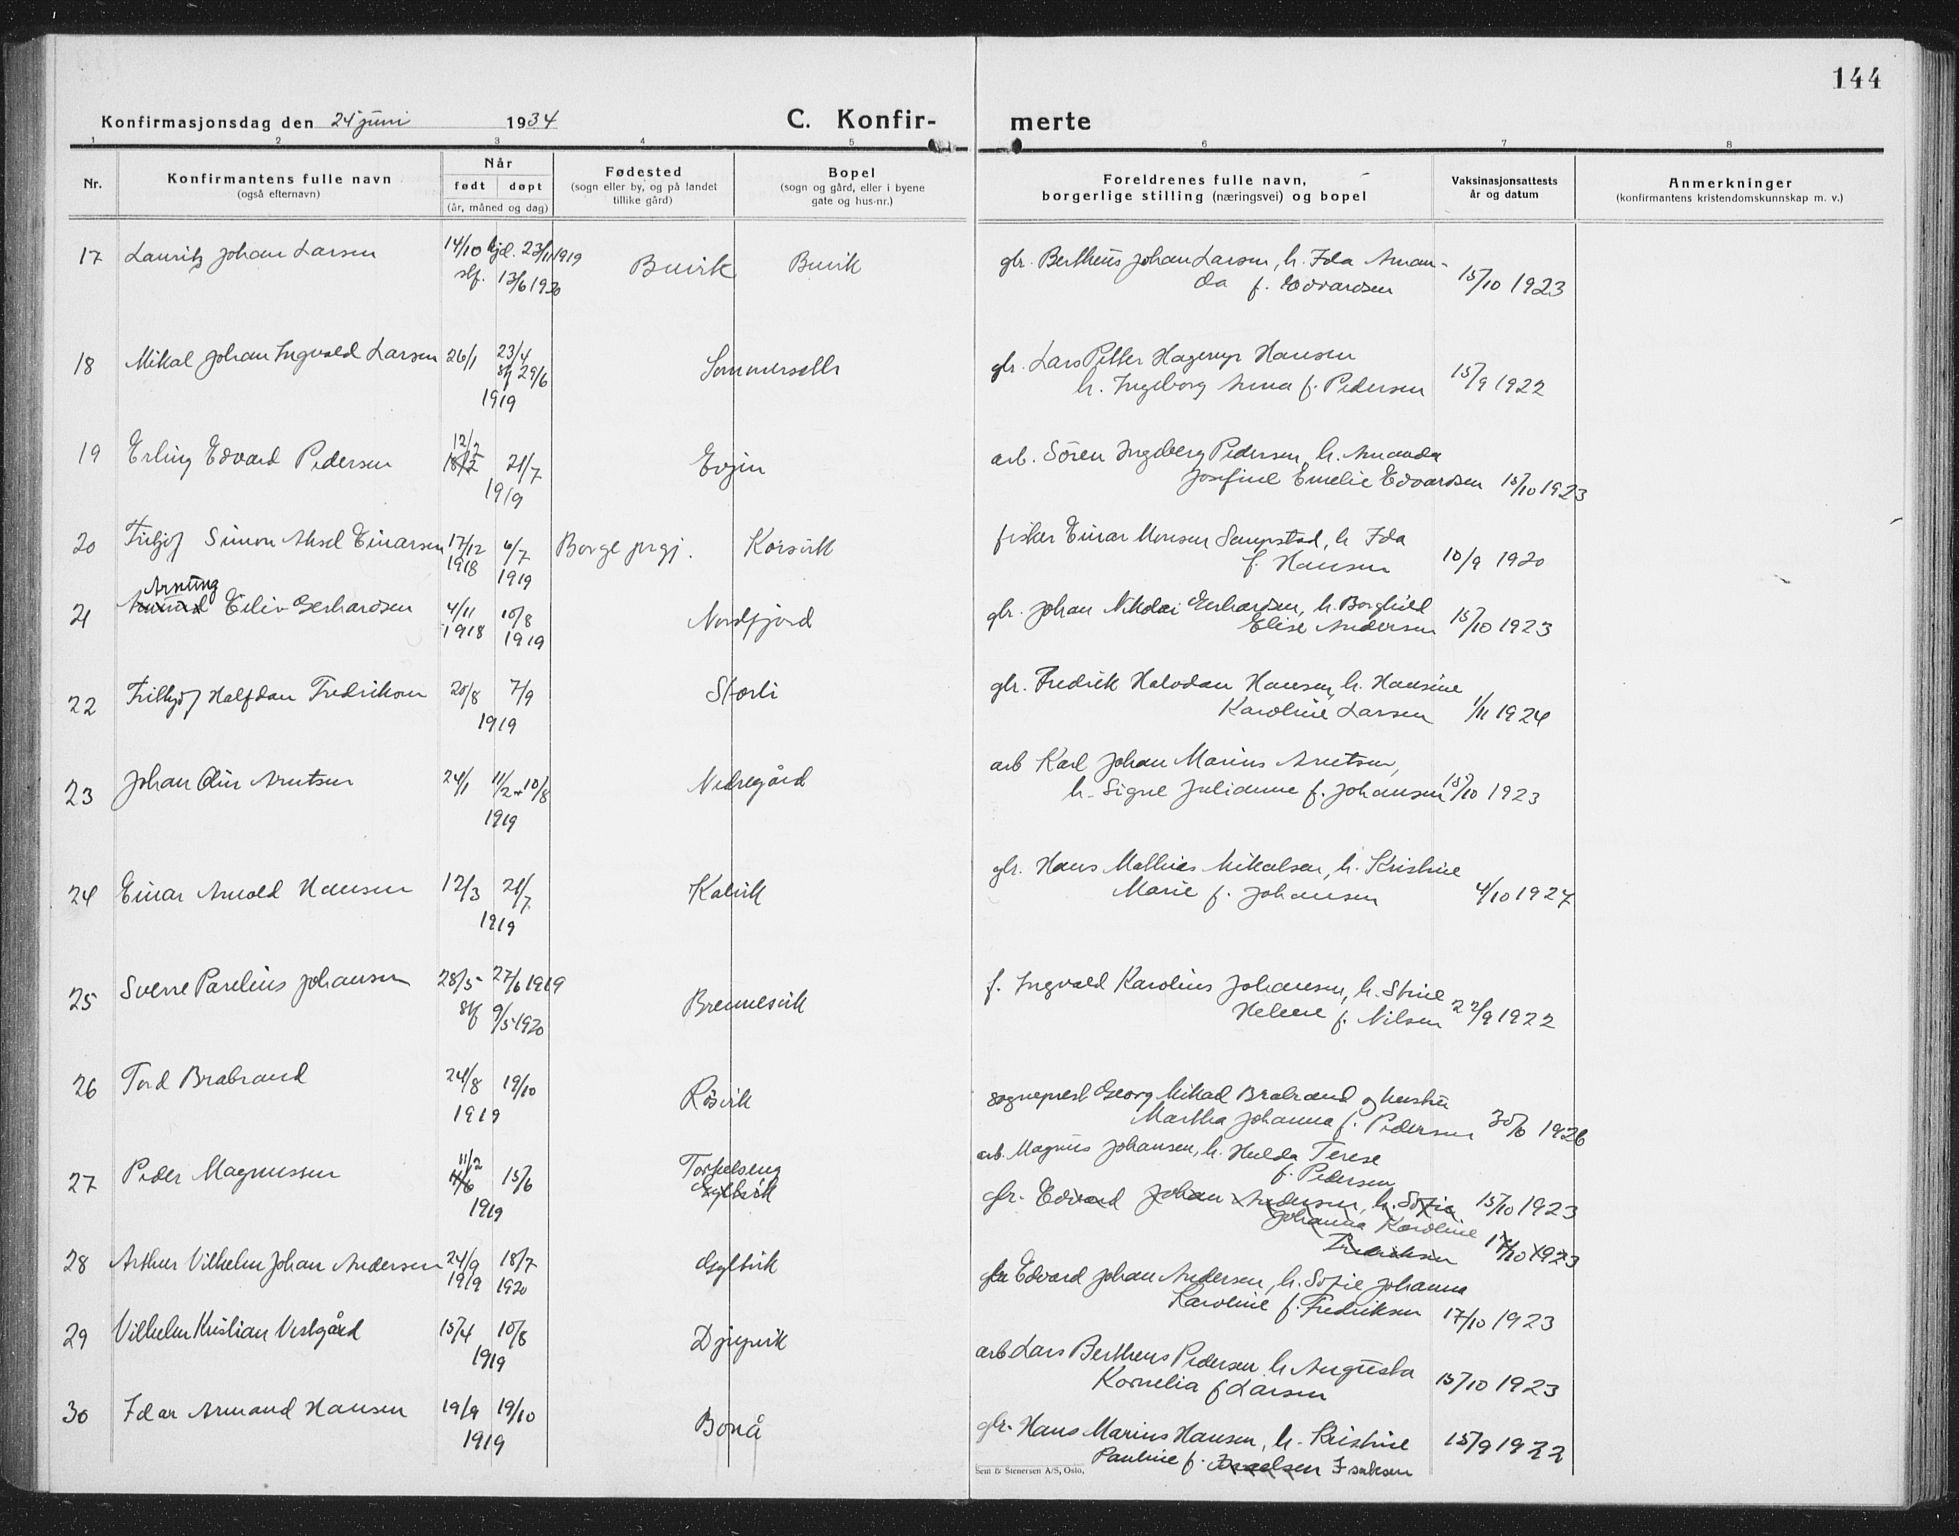 144
Konfirmasjonsdag den 24 juni 1934
C. Konfir-
merte
1 2 3 4 5 6 7 8
Nr.
Konfirmantens fulle navn
(også efternavn)
Når
født døpt
(år, måned og dag)
Fødested
(sogn eller by, og på landet
tillike gård)
Bopel
(sogn og gård, eller i byene
gate og hus-nr.)
Foreldrenes fulle navn,
borgerlige stilling (næringsvei) og bopel
Vaksinasjonsattests
år og datum
Anmerkninger
(konfirmantens kristendomskunnskap m. v.)
17 Lauritz Johan Larsen 14/10 hjd. 23/11 1919 Buvik Buvik gbr. Bertheus Johan Larsen, h. Ida Aman-
stf. 13/6 1920 da f. Edvardsen 15/10 1923
18 Mikal Johan Ingvald Larsen 26/1 23/4 Sommerseth gbr. Lars Petter Hagerup Hansen
stf 29/6 h. Ingeborg Anna f. Pedersen 15/9 1922
1919
19 Erling Edvard Pedersen 12/2 21/7 Evjen arb. Sören Ingeberg Pedersen, h. Amanda
1919 Josefine Emelie Edvardsen 15/10 1923
20 Fritjof Simon Aksel Einarsen 17/12 6/7 Borge prgj. Korsvik fisker Einar Monsen Sempstad, h. Ida
1918 1919 f. Hansen 10/9 1920
Arnung
21 Eiliv Gerhardsen 4/11 10/8 Nordfjord gbr. Johan Nikolai Gerhardsen, h. Borghild
1918 1919 Elise Andersen 15/10 1923
22 Frithjof Halfdan Fredriksen 20/8 7/9 Storli gbr. Fredrik Halvdan Hansen, h. Hansine
1919 Karoline Larsen 1/11 1924
23 Johan Odin Arntsen 24/1 11/2 + 10/8 Nedregård arb Karl Johan Marius Arntsen,
1919 h. Signe Julianne f. Johansen 15/10 1923
24 Einar Arnold Hansen 12/3 21/7 Kalvik gbr. Hans Mathias Mikalsen, h. Kristine
1919 Marie f. Johansen 4/10 1927
25 Sverre Parelius Johansen 28/5 27/6 1919 Brennesvik f. Ingvald Karolius Johansen, h. Stine
stf 9/5 1920 Helene f. Nilsen 22/9 1922
26 Tord Brabrand 24/8 19/10 Røsvik sogneprest Georg Mikael Brabrand og hustru
1919 Martha Johanna f. Pedersen 30/6 1926
27 Peder Magnussen 11/2 15/6 Torkelseng arb. Magnus Johansen, h. Hulda Terese
4/6 Gyltvik f. Pedersen
1919 gbr. Edvard Johan Andersen, h. Sofie 15/10 1923
Johanna Karoline
Fredriksen 17/10 1923
28 Arthur Vilhelm Johan Andersen 24/9 18/7 Gyltvik gbr Edvard Johan Andersen, h. Sofie Johanna
1919 1920 Karoline f. Fredriksen 17/10 1923
29 Vilhelm Kristian Vestgård 15/4 10/8 Djupvik arb Lars Bertheus Pedersen h Augusta
1919 Kornelia f Larsen 15/10 1923
30 Idar Armand Hansen 19/9 19/10 Bonå gbr. Hans Marius Hansen, h. Kristine 15/9 1922
1919 Pauline f. Israelsen Isaksen
Sem & Stenersen A/S, Oslo.